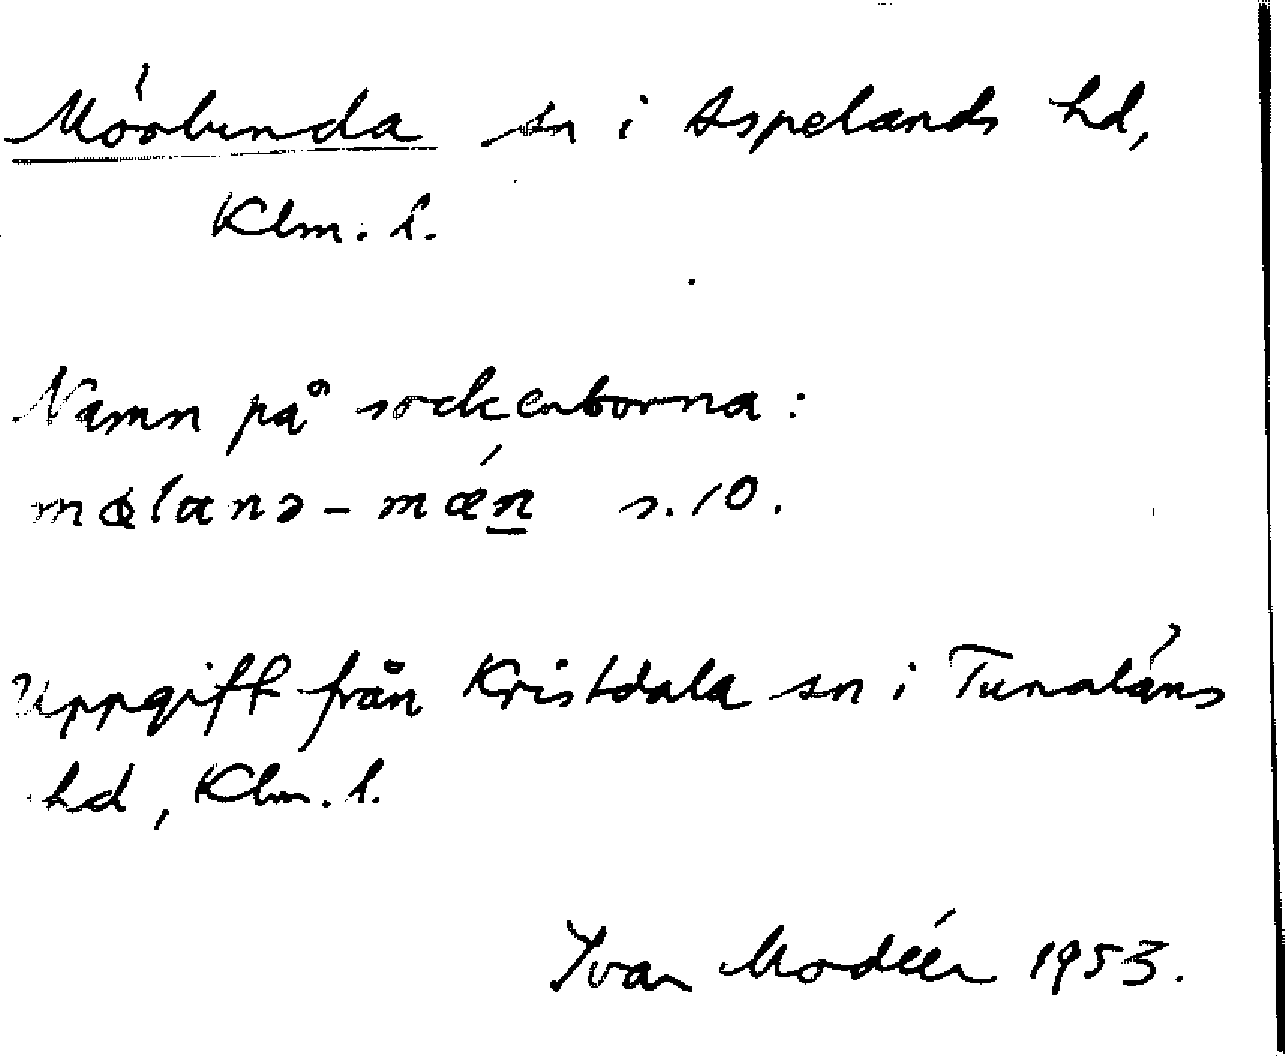 Mörlunda sn i Aspelands hd,
Klm. l.
Namn på sockenborna:
mølanə-mǽn̲ s. 10.
Uppgift från Kristdala sn i Tunaläns
hd, Klm. l.
Ivar Modéer 1953.